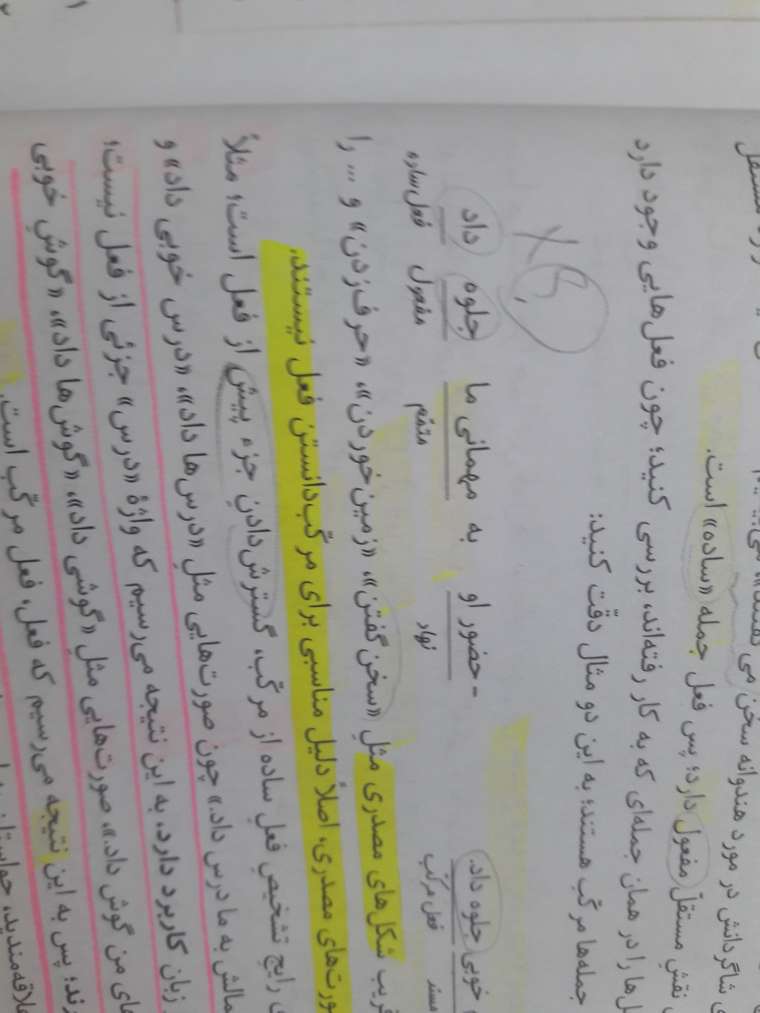 در مورد هندوانه سخن می
مفعول دارد؛ پس فعل جمله «ساده» است.
ل‌ها را در همان جمله‌ای که به کار رفته‌اند، بررسی کنید؛ چون فعل‌هایی وجود دارد
جمله‌ها مرکّب هستند؛ به این دو مثال دقّت کنید:
خوبی جلوه داد. - حضور او به مهمانی ما جلوه داد
مسند فعل مرکّب نهاد متمّم مفعول فعل ساده
شکل‌های مصدری مثلِ «سخن گفتن»، «زمین خوردن»، «حرف زدن» و ... را
ورت‌های مصدری، اصلاً دلیل مناسبی برای مرکّب‌دانستن فعل نیستند.
رایج تشخیص فعلِ ساده از مرکّب، گسترش‌دادنِ جزء پیش از فعل است؛ مثلاً
مالش به ما درس داد.» چون صورت‌هایی مثلِ «درس‌ها داد»، «درس خوبی داد» و
زبان کاربرد دارد، به این نتیجه می‌رسیم که واژهٔ «درس» جزئی از فعل نیست؛
های من گوش داد.»، صورت‌هایی مثلِ «گوشی داد»، «گوش‌ها داد»، «گوشِ خوبی
رند؛ پس به این نتیجه می‌رسیم که فعل، فعل مرکّب است.
علاقه‌مندید، حواستان